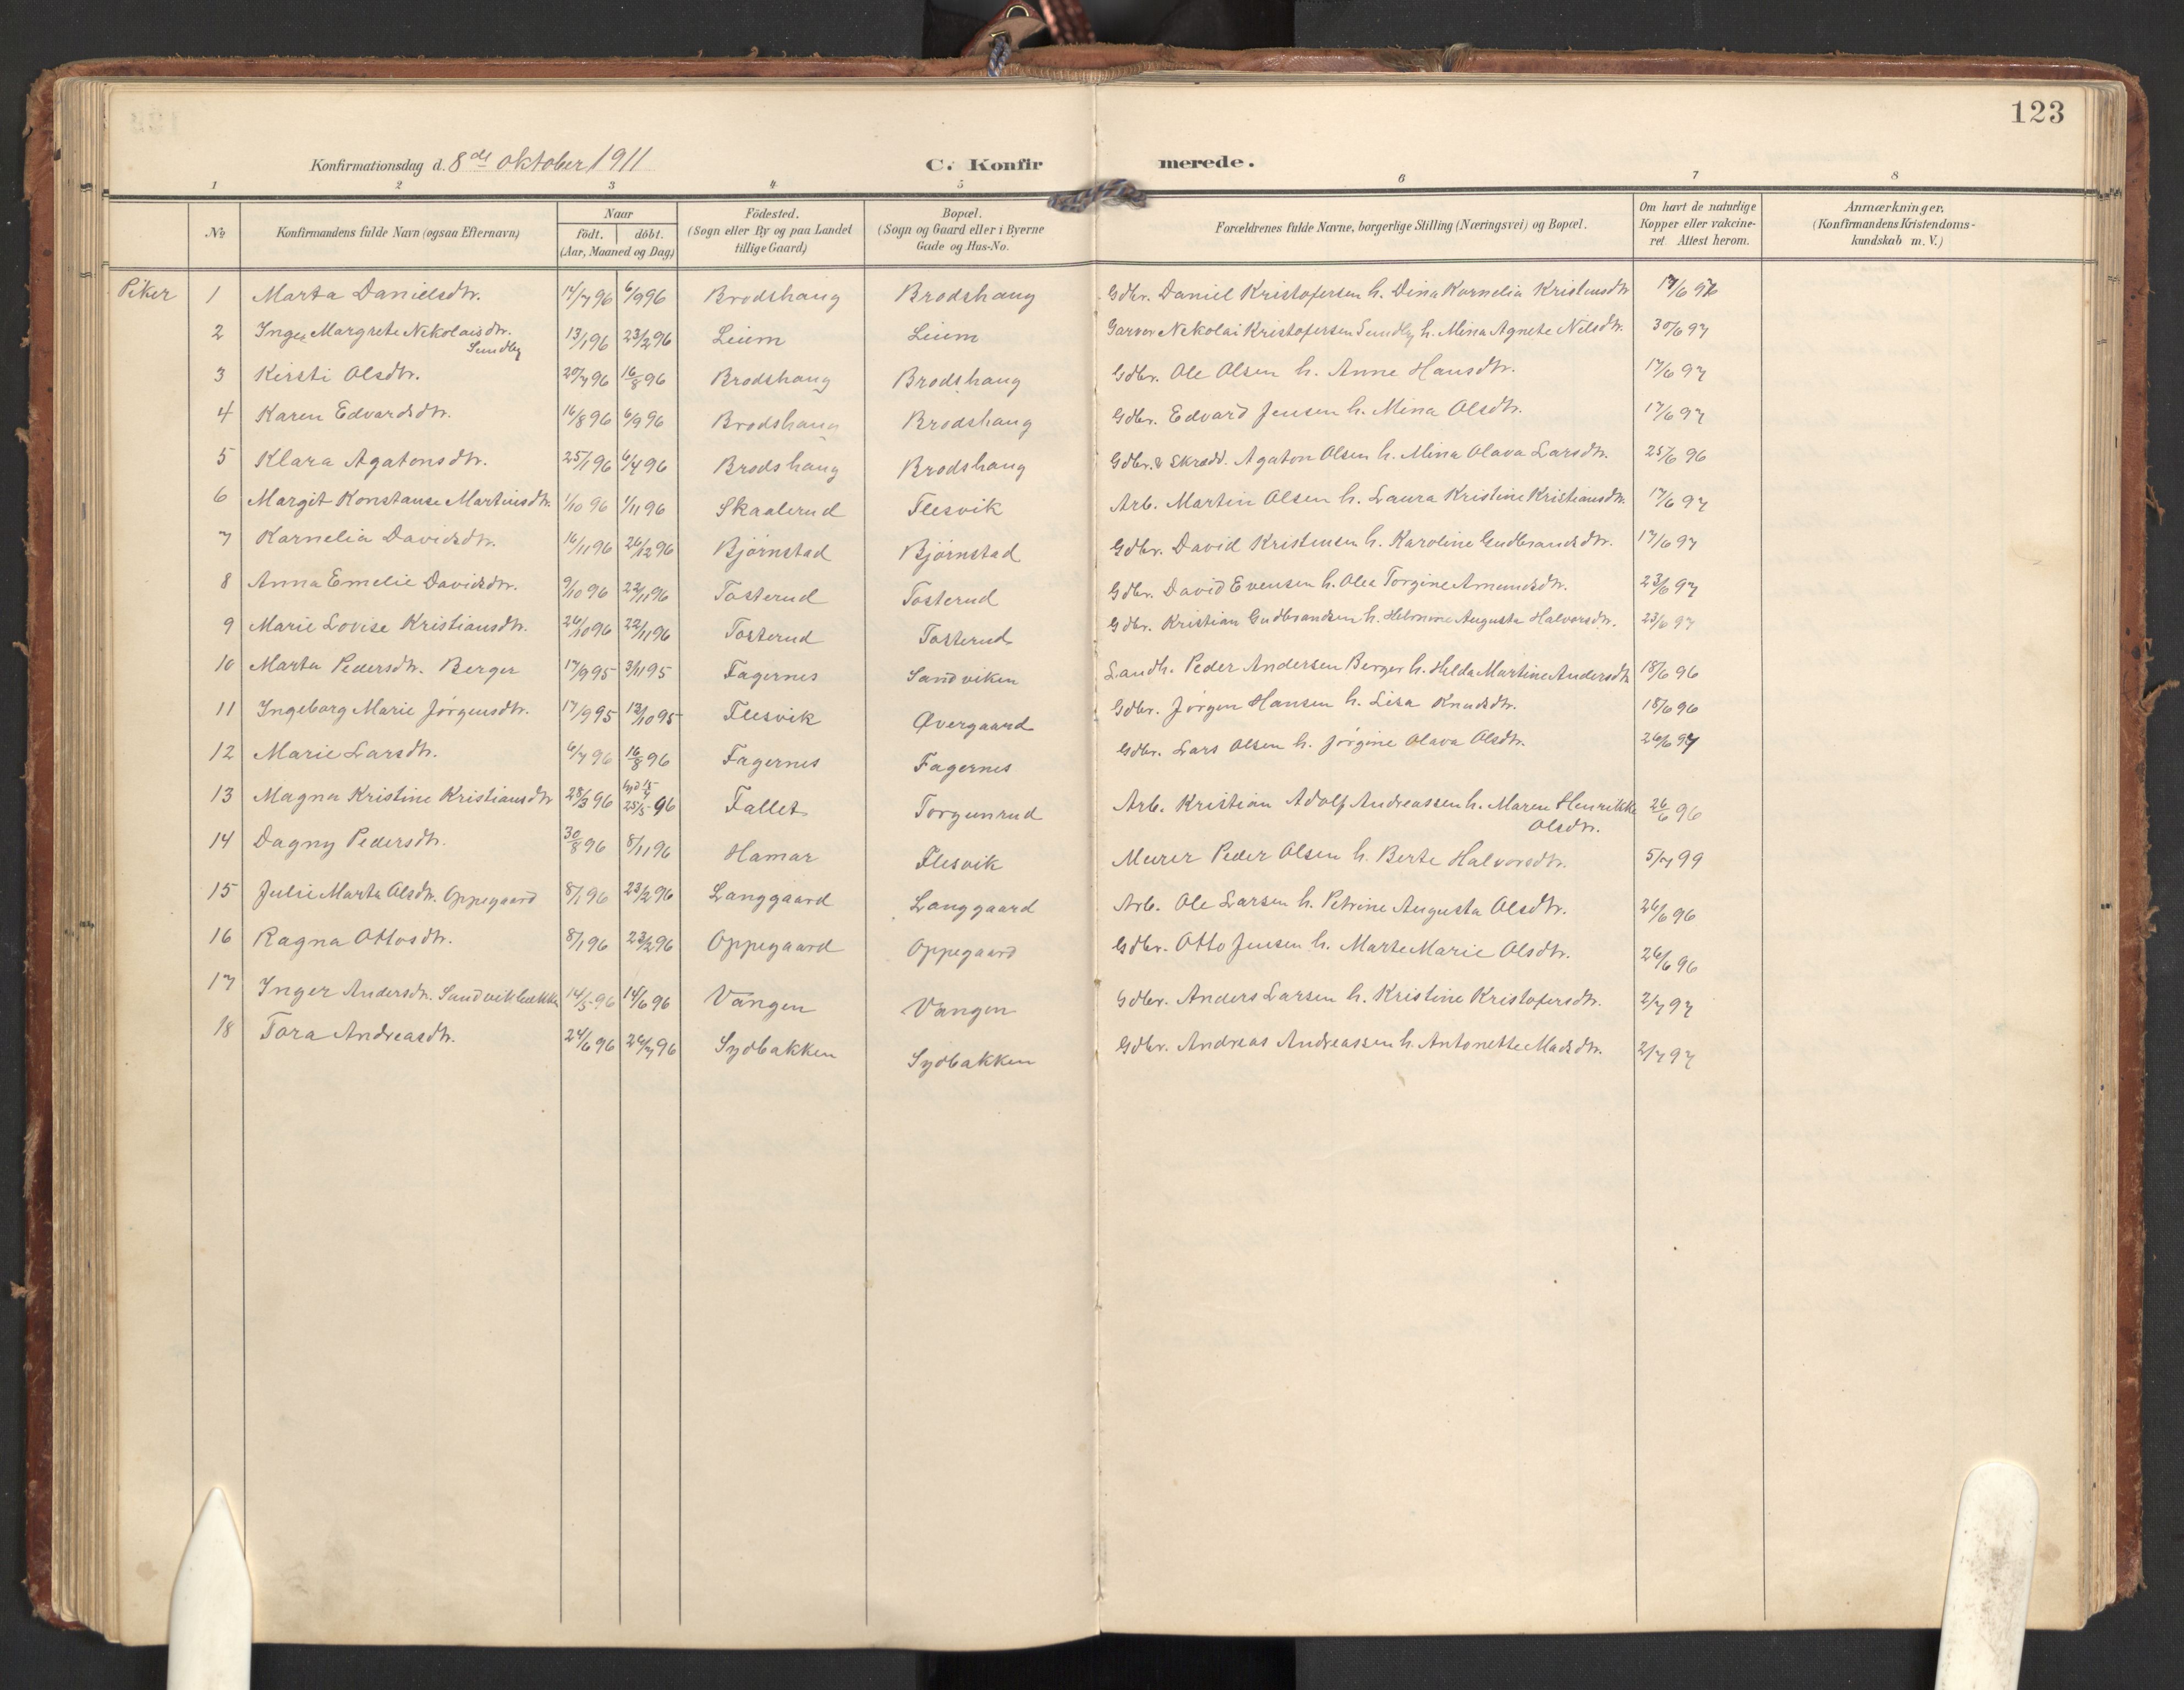 123
Konfirmationsdag d. 8de oktober 1911 C. Konfirmerede.
1 2 3 4 5 6 7 8
No Konfirmandens fulde Navn (ogsaa Efternavn) Naar födt. döbt. (Aar, Maaned og Dag) Födested. (Sogn eller By og paa Landet tillige Gaard) Bopæl. (Sogn og Gaard eller i Byerne Gade og Hus-No. Forældrenes fulde Navne, borgerlige Stilling (Næringsvei) og Bopæl. Om havt de naturlige Kopper eller vakcineret. Attest herom. Anmærkninger, (Konfirmandens Kristendomskundskab m. V.)
Piker 1 Marta Danielsdtr. 14/7 96 6/9 96 Brodshaug Brodshaug Gdbr. Daniel Kristofersen h. Dina Karnelia Kristensdtr 17/6 97
2 Inger Margrete Nekolaisdtr. Sundby 13/1 96 23/2 96 Leium Leium Garver Nekolai Kristofersen Sundby h. Mina Agnete Nilsdtr. 30/6 97
3 Kirsti Olsdtr. 20/7 96 16/8 96 Brodshaug Brodshaug Gdbr. Ole Olsen h. Anne Hansdtr. 17/6 97
4 Karen Edvardsdtr. 16/8 96 6/9 96 Brodshaug Brodshaug Gdbr. Edvard Jensen h. Mina Olsdtr. 17/6 97
5 Klara Agatonsdtr. 25/1 96 6/4 96 Brodshaug Brodshaug Gdbr. & Skrædd. Agaton Olsen h. Mina Olava Larsdtr. 25/6 96
6 Margit Konstanse Martinsdtr. 1/10 96 1/11 96 Skaalerud Flesvik Arb. Martin Olsen h. Laura Kristine Kristiansdtr. 17/6 97
7 Karnelia Davidsdtr. 16/11 96 26/12 96 Björnstad Björnstad Gdbr. David Kristensen h. Karoline Gudbrandsdtr. 17/6 97
8 Anna Emelie Davidsdtr. 9/10 96 22/11 96 Tosterud Tosterud Gdbr. David Evensen h. Olea Torgine Amundsdtr. 23/6 97
9 Marie Lovise Kristiansdtr. 26/10 96 22/11 96 Tosterud Tosterud Gdbr. Kristian Gudbrandsen h. Helmine Augusta Halvorsdtr. 23/6 97
10 Marta Pedersdtr. Berger 17/9 95 3/11 95 Fagernes Sandviken Landh. Peder Andersen Berger h. Hilda Martine Andersdtr 18/6 96
11 Ingeborg Marie Jørgensdtr. 17/9 95 13/10 95 Flesvik Øvergaard Gdbr. Jørgen Hansen h. Lisa Knudsdtr. 18/6 96
12 Marie Larsdtr. 6/7 96 16/8 96 Fagernes Fagernes Gdbr. Lars Olsen h. Jørgine Olava Olsdtr. 26/6 97
13 Magna Kristine Kristiansdtr 28/3 96 25/5 96 Fallet Torgunrud Arb. Kristian Adolf Andreassen h. Maren Henrikke Olsdtr. 26/6 96
14 Dagny Pedersdtr. 30/8 96 8/11 96 Hamar Flesvik Murer Peder Olsen h. Berte Halvorsdtr. 5/7 99
15 Julie Marta Olsdtr. Oppegaard 8/1 96 23/2 96 Langgaard Langgaard Arb. Ole Larsen h. Petrine Augusta Olsdtr. 26/6 96
16 Ragna Ottosdtr. 8/1 96 23/2 96 Oppegaard Oppegaard Gdbr. Otto Jensen h. Marte Marie Olsdtr. 26/6 96
17 Inger Andersdtr. Sandvikbækken 14/5 96 14/6 96 Vangen Vangen Gdbr. Anders Larsen h. Kristine Kristofersdtr. 2/7 97
18 Tora Andreasdtr. 24/6 96 26/7 96 Sydbakken Sydbakken Gdbr. Andreas Andreassen h. Antonette Madsdtr. 2/7 97